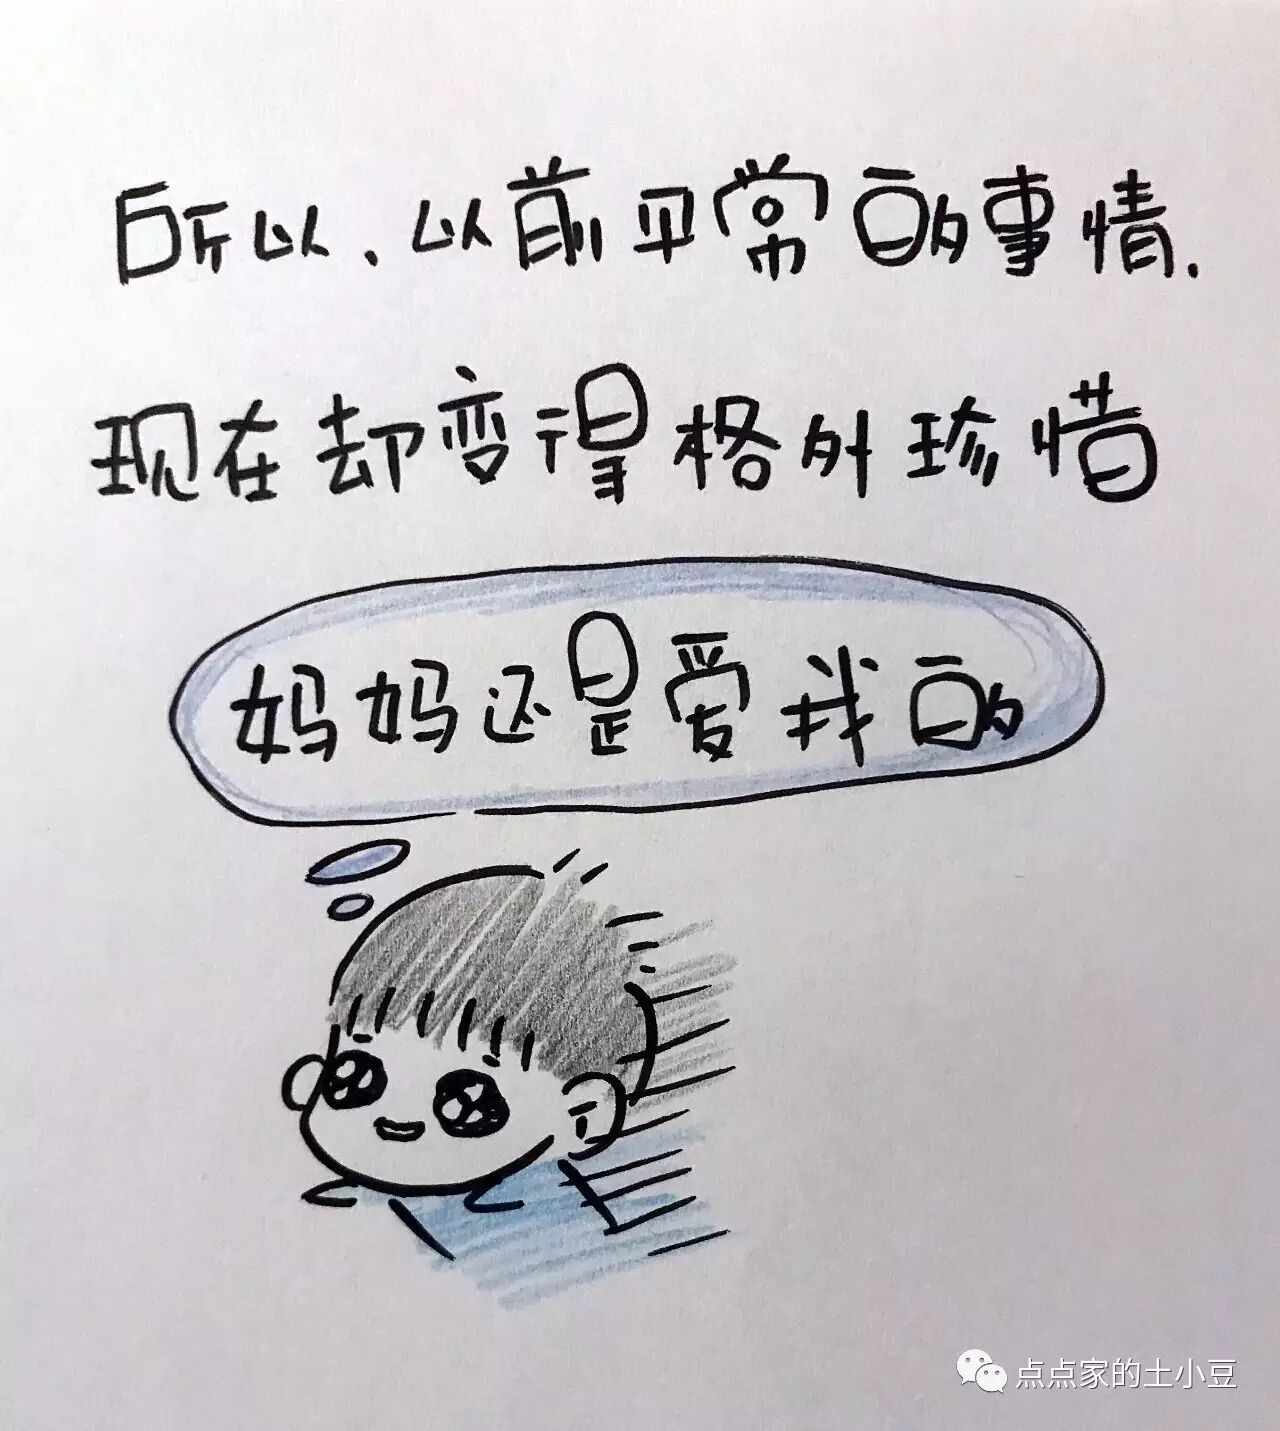 所以、以前平常的事情.
现在却变得格外珍惜
妈妈还是爱我的
点点家的土小豆